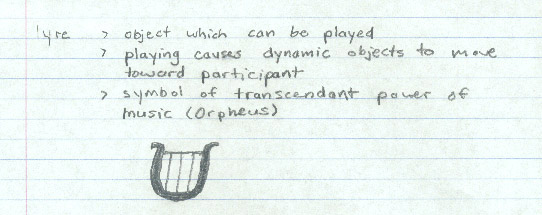 lyre > object which can be played
> playing causes dynamic objects to move
toward participant
> symbol of transcendant power of
music (Orpheus)